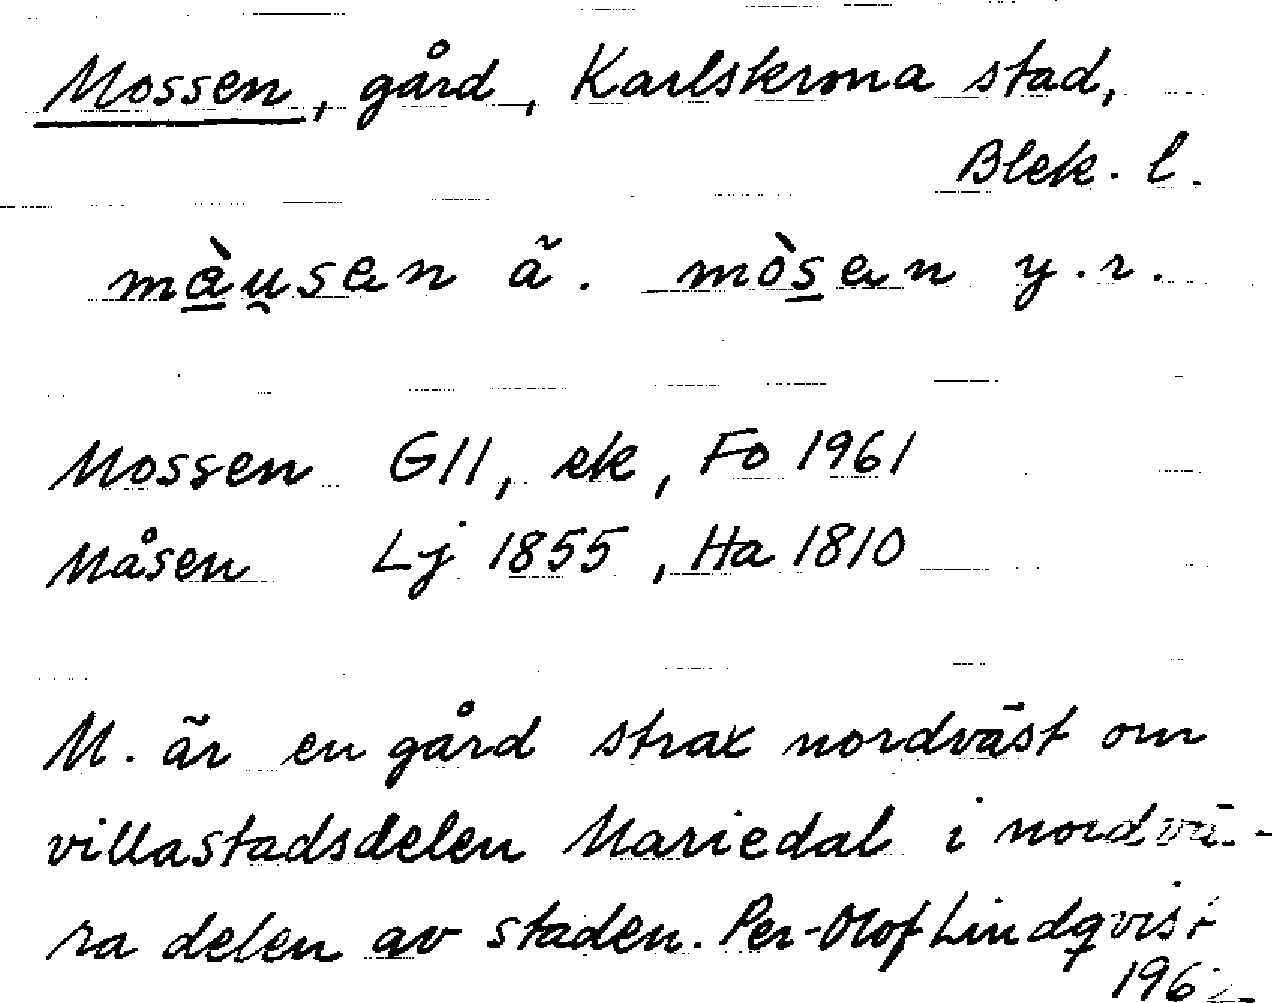 Mossen, gård, Karlskrona stad,
Blek. l.
màu̯sen ä. mòsen y.r.
Mossen G11, ek, Fo 1961
Måsen Lj 1855, Ha 1810
M. är en gård strax nordväst om
villastadsdelen Mariedal i nordvä-
ra delen av staden. Per-Olof Lindqvist